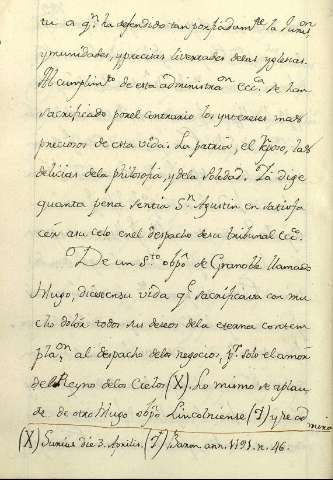 tu a q.n ha defendido tan porfiadam.te la Juris.on
ymunidades, y precisas livertades delas yglesias.
Al cumplim.to de esta administra.on Ecc.ca se han
sacrificado por el contrario los yntereses mas
preciosos de esta vida. La patria, el reposo, las
delicias dela philosofia, y dela soledad. Ya dige
quanta pena sentia S.n Agustin en satisfa
cér asu celo en el despacho desu tribunal Ecc.co
De un S.to obpō de Granoble llamado
Hugo, dice en su vida q.e sacrificava con mu
cho dolór todos sus deseos dela eterna contem
pla.on al despacho delos negocios, p.r solo el amór
del Reyno delos Cielos (X). Lo mismo se aplau
de de otro Hugo obpō Lincolniense (J) y se admiró
(X) Surius die 3. Aprilis. (J) Baron. ann. 1191. n. 46.